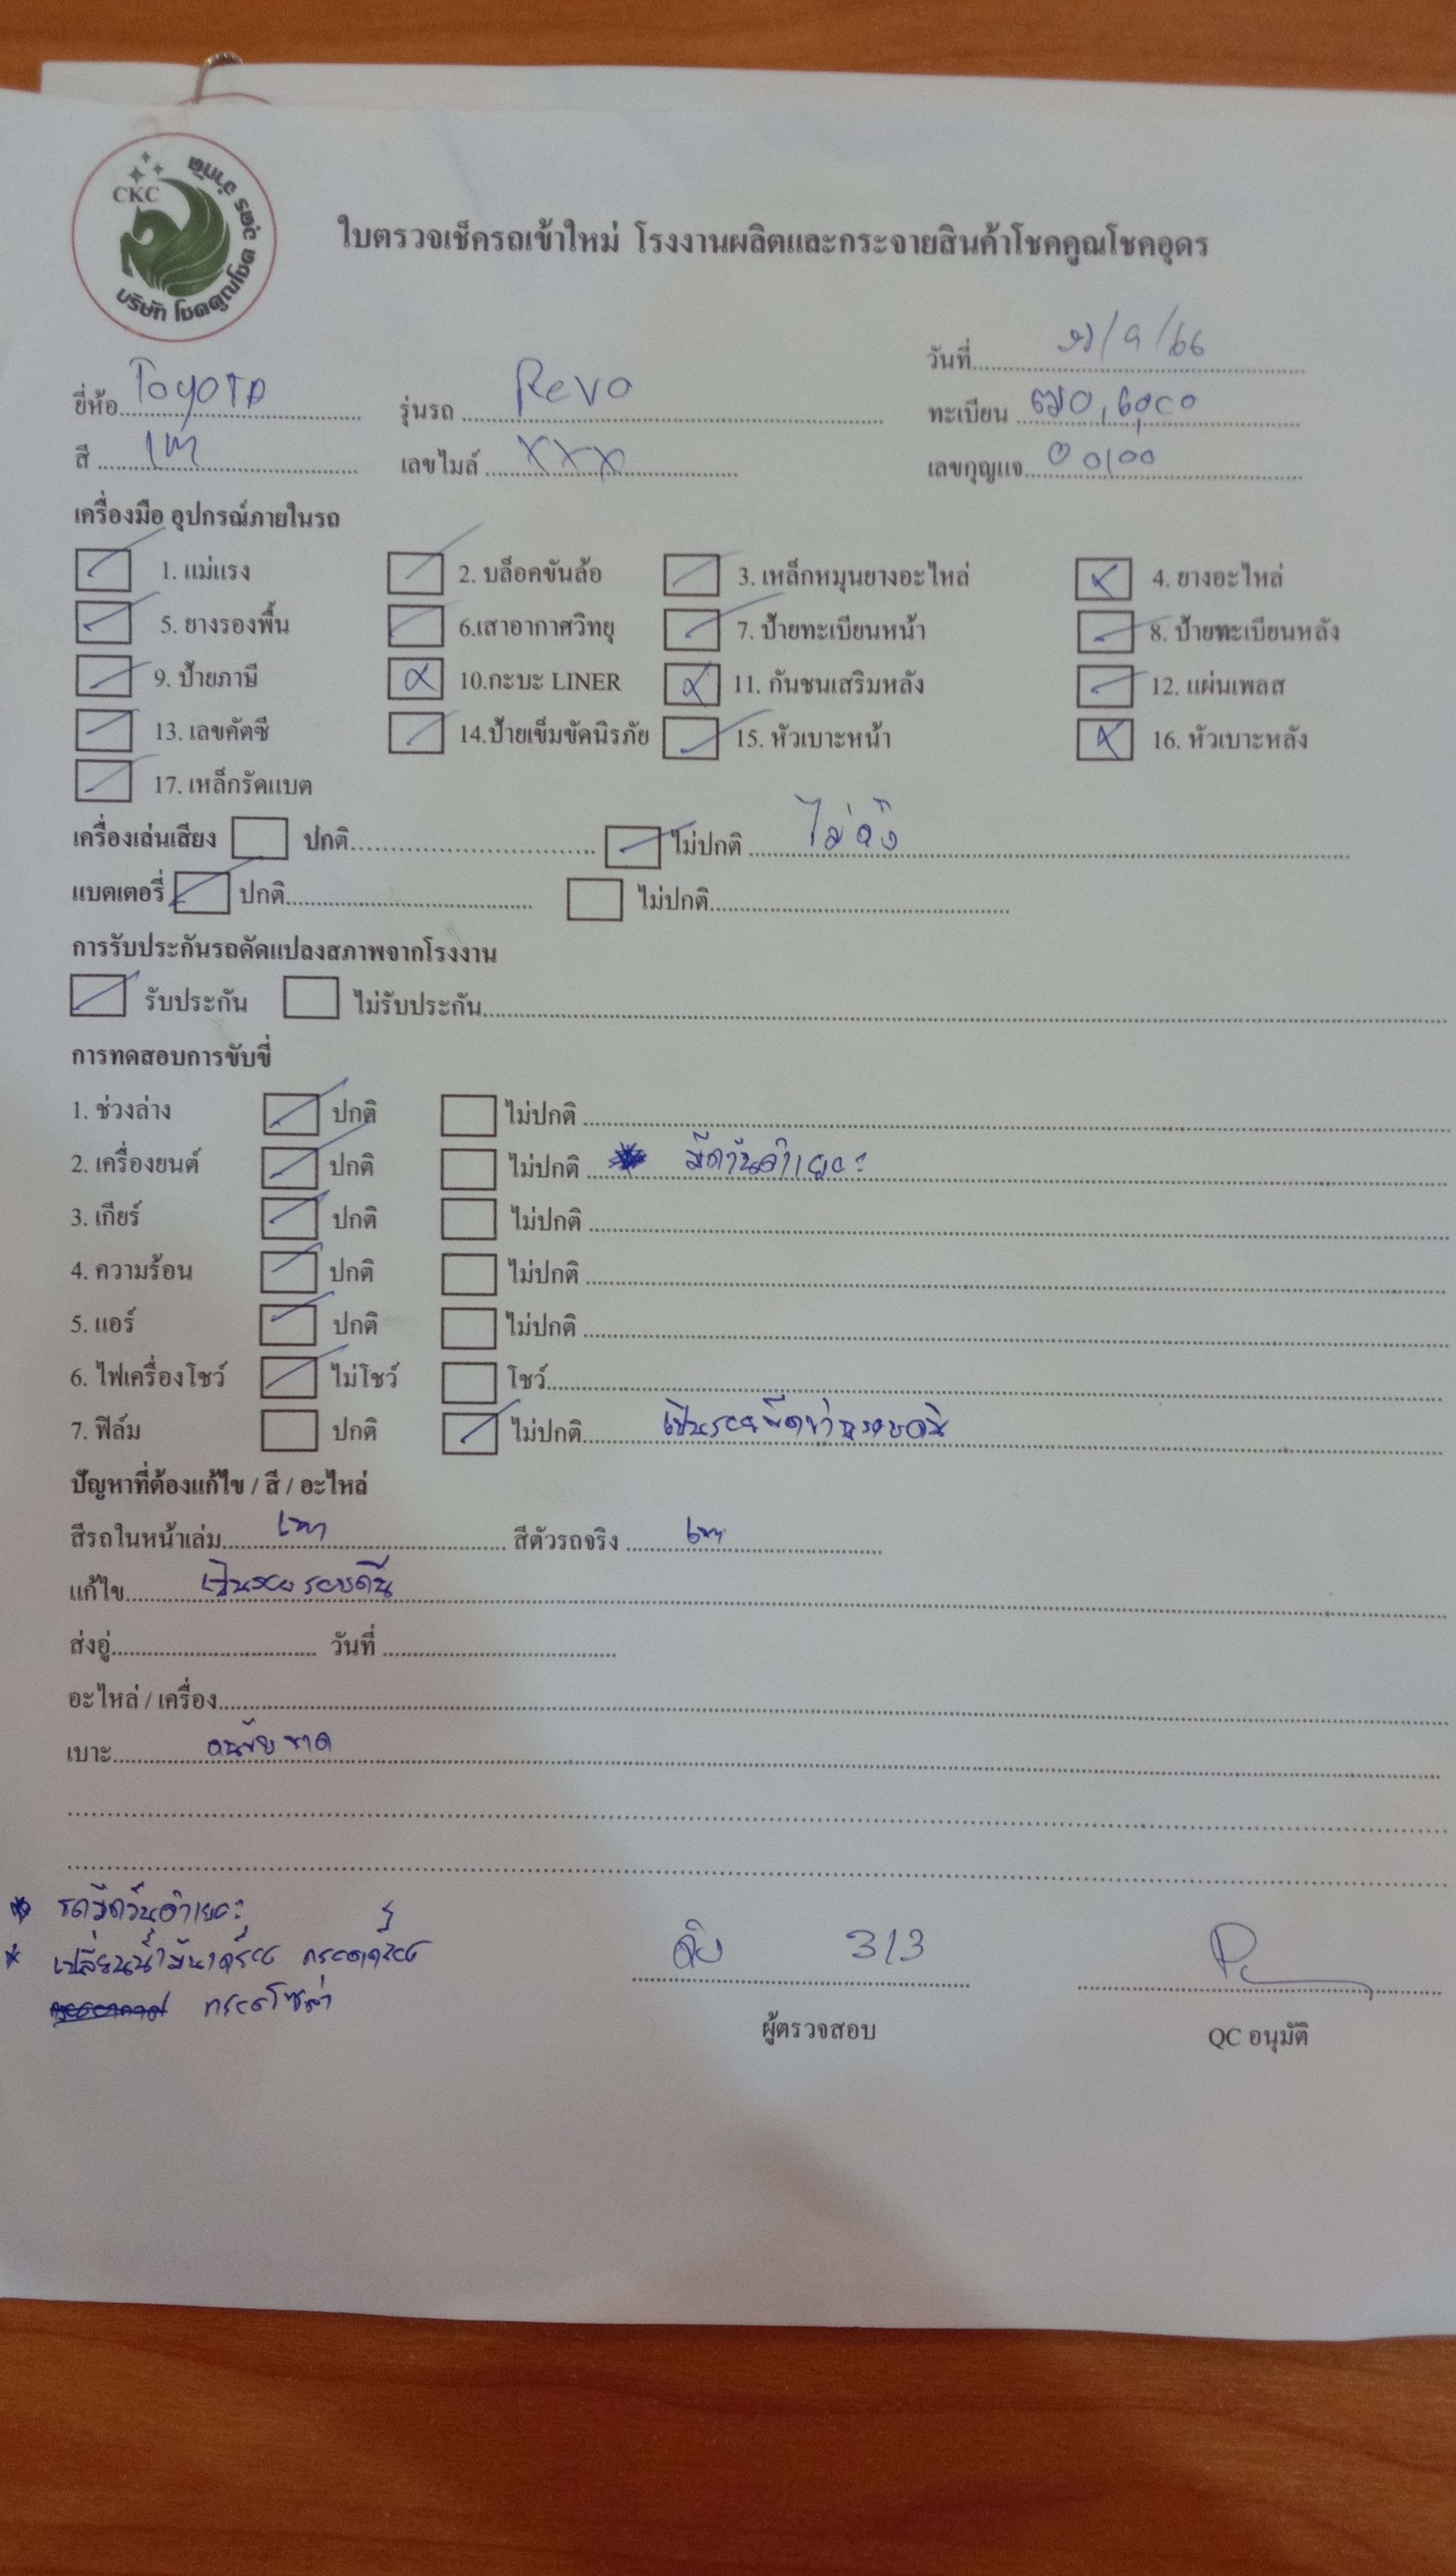 CKC
บริษัท โชคคูณโชค อุดร จำกัด
ใบตรวจเช็ครถเข้าใหม่ โรงงานผลิตและกระจายสินค้าโชคคูณโชคอุดร
วันที่ /9/66
ยี่ห้อ TOYOTA รุ่นรถ Revo ทะเบียน
สี เทา เลขไมล์ XXX เลขกุญแจ 00100
เครื่องมือ อุปกรณ์ภายในรถ
1. แม่แรง 2. บล็อคขันล้อ 3. เหล็กหมุนยางอะไหล่ 4. ยางอะไหล่
5. ยางรองพื้น 6.เสาอากาศวิทยุ 7. ป้ายทะเบียนหน้า 8. ป้ายทะเบียนหลัง
9. ป้ายภาษี 10.กะบะ LINER 11. กันชนเสริมหลัง 12. แผ่นเพลส
13. เลขคัตซี 14.ป้ายเข็มขัดนิรภัย 15. หัวเบาะหน้า 16. หัวเบาะหลัง
17. เหล็กรัดแบต
เครื่องเล่นเสียง ปกติ ไม่ปกติ ไม่ดัง
แบตเตอรี่ ปกติ ไม่ปกติ
การรับประกันรถดัดแปลงสภาพจากโรงงาน
รับประกัน ไม่รับประกัน
การทดสอบการขับขี่
1. ช่วงล่าง ปกติ ไม่ปกติ
2. เครื่องยนต์ ปกติ ไม่ปกติ * มีควันดำเยอะ
3. เกียร์ ปกติ ไม่ปกติ
4. ความร้อน ปกติ ไม่ปกติ
5. แอร์ ปกติ ไม่ปกติ
6. ไฟเครื่องโชว์ ไม่โชว์ โชว์
7. ฟิล์ม ปกติ ไม่ปกติ เป็นรอยขีดข่วนรอบคัน
ปัญหาที่ต้องแก้ไข / สี / อะไหล่
สีรถในหน้าเล่ม เทา สีตัวรถจริง เทา
แก้ไข เป็นรอยรอบคัน
ส่งอู่ วันที่
อะไหล่ / เครื่อง
เบาะ คนขับขาด
* รถมีควันดำเยอะ
* เปลี่ยนน้ำมันเครื่อง กรองเครื่อง
กรองโซล่า
313
ผู้ตรวจสอบ QC อนุมัติ